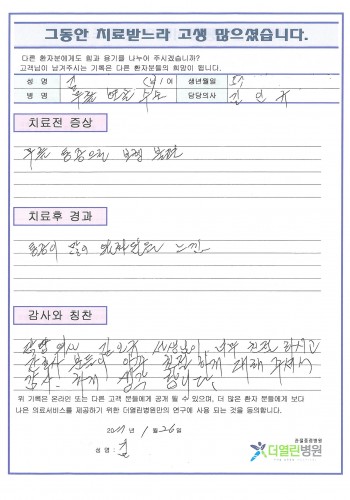 그동안 치료받느라 고생 많으셨습니다.
다른 환자분에게도 힘과 용기를 나누어 주시겠습니까?
고객님이 남겨주시는 기록은 다른 환자분들의 희망이 됩니다.
성 명 김 (남)여 생년월일
병 명 무릎 연골 부분 담당의사 김 민 규
치료전 증상
무릎 통증으로 보행 불편
치료후 경과
통증이 많이 느낌
감사와 칭찬
담당 의사 김 민규 선생님이 너무 친절 하시고
간호사 분들이 아주 친절 하게 대해 주셔서
감사 하게 생각 합니다.
위 기록은 온라인 또는 다른 고객 분들에게 공개 될 수 있으며, 더 많은 환자 분들에게 보다
나은 의료서비스를 제공하기 위한 더열린병원만의 연구에 사용 되는 것을 동의합니다.
년 1월 26일
성명 : 김
관절중점병원
더열린병원